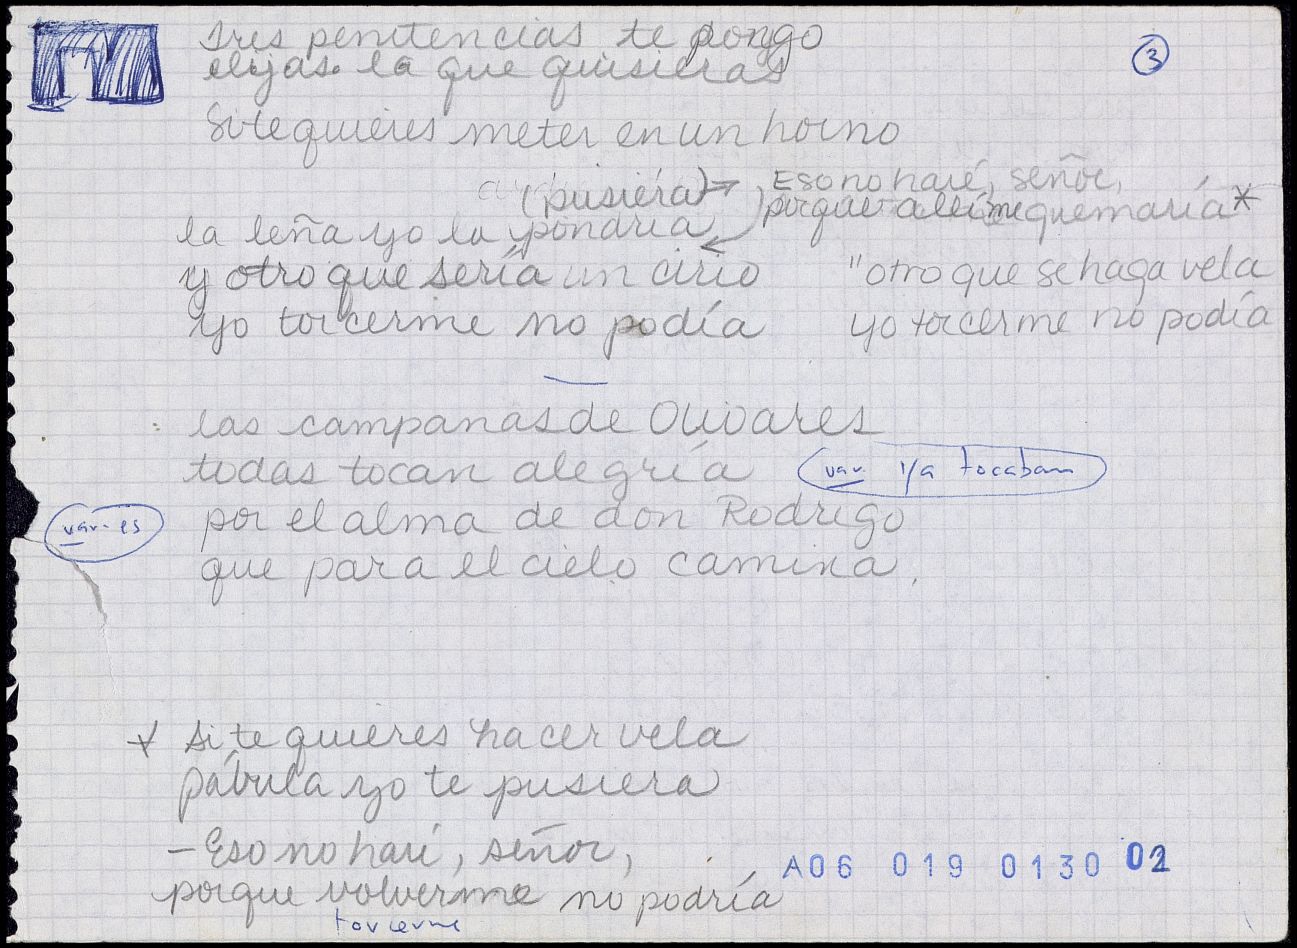 tres penitencias te pongo
elijas la que quisieras
③
Si te quieres meter en un horno
(pusiera) Eso no haré, señor,
porque allí me quemaría *
la leña yo la pondría
y otro que sería un cirio "otro que se haga vela
yo torcerme no podía yo torcerme no podía
las campanas de Olivares
todas tocan alegría var. ya tocaban
var. es por el alma de don Rodrigo
que para el cielo camina.
* si te quieres hacer vela
pábula yo te pusiera
- Eso no haré, señor,
porque volverme no podría
torcerme
A06 019 0130 02